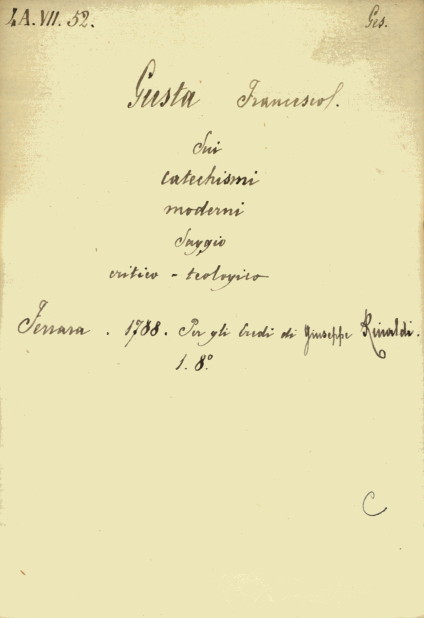 LA. VII. 52.
Ges.
Gusta Francesco.
Sui
catechismi
moderni
Saggio
critico - teologico
Ferrara. 1788. Per gli Eredi di Giuseppe Rinaldi.
1. 8º
C